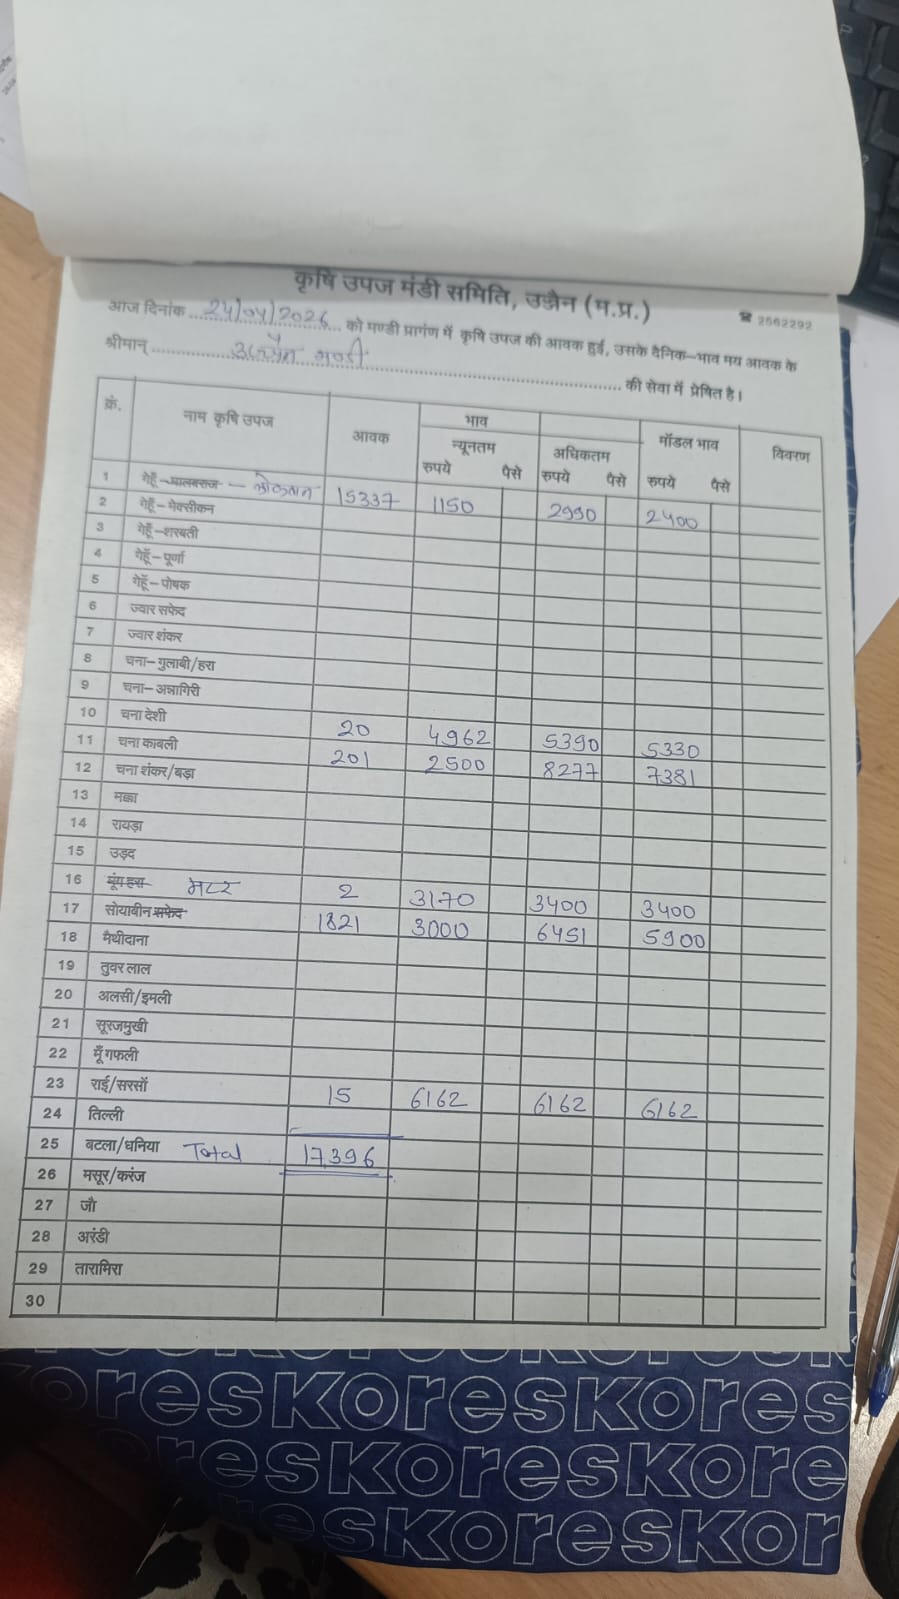 कृषि उपज मंडी समिति, उज्जैन (म.प्र.)
☎ 2562292
आज दिनांक 24/04/2026 को मण्डी प्रागंण में कृषि उपज की आवक हुई, उसके दैनिक-भाव मय आवक के
श्रीमान् उज्जैन मण्डी की सेवा में प्रेषित है।
क्रं. नाम कृषि उपज आवक भाव न्यूनतम रुपये पैसे अधिकतम रुपये पैसे मॉडल भाव रुपये पैसे विवरण
1 गेहूँ-मालवराज - लोकवन 15337 1150 2990 2400
2 गेहूँ-मेक्सीकन
3 गेहूँ-शरबती
4 गेहूँ-पूर्णा
5 गेहूँ-पोषक
6 ज्वार सफेद
7 ज्वार शंकर
8 चना-गुलाबी/हरा
9 चना-अन्नागिरी
10 चना देशी 20 4962 5390 5330
11 चना काबली 201 2500 8277 7381
12 चना शंकर/बड़ा
13 मक्का
14 रायड़ा
15 उड़द
16 मूंग हरा मटर 2 3170 3400 3400
17 सोयाबीन सफेद 1821 3000 6451 5900
18 मैथीदाना
19 तुवर लाल
20 अलसी/इमली
21 सूरजमुखी
22 मूँगफली
23 राई/सरसों 15 6162 6162 6162
24 तिल्ली
25 बटला/धनिया Total 17396
26 मसूर/करंज
27 जौ
28 अरंडी
29 तारामिरा
30
oresKoresKores
resKoresKore
esKoresKor